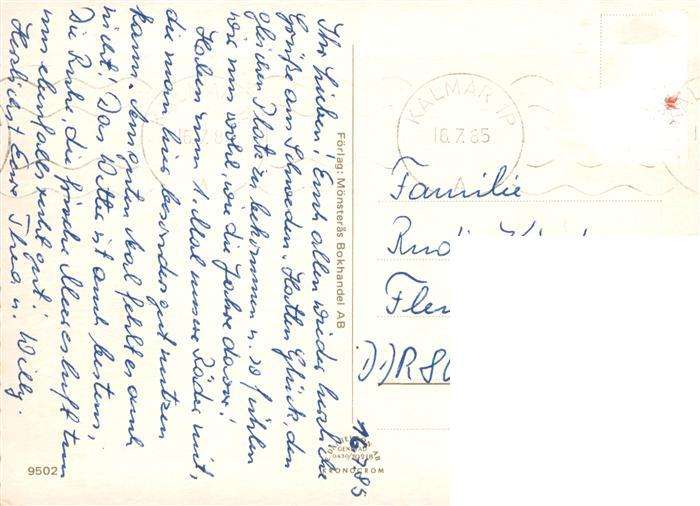 Ihr Lieben! Euch allen wieder herzliche
Grüße aus Schweden. Hatten Glück, den
gleichen Platz zu bekommen u. so fühlen
wir uns wohl, wie die Jahre davor!
Haben zum 1. Mal unsere Räder mit,
die man hier besonders gut nutzen
kann. An Kontakten fehlt es auch
nicht! Das Wetter ist auch bestens,
Die Ruhe, die frische Meeresluft tun
uns ebenfalls recht gut!
Herzlichst Eure Thea u. Willy.
16.7.85
Förlag: Mönsterås Bokhandel AB
KALMAR 1P
16.7.85
Familie
9502
KRONOCROM